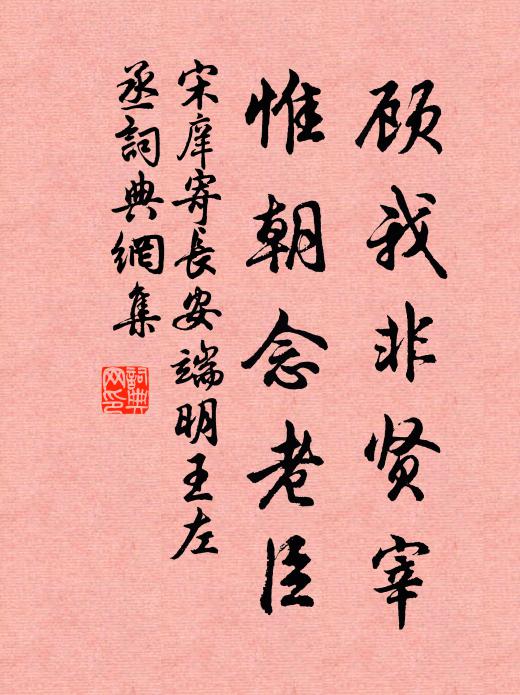 顾我非贤宰
惟朝念老臣
宋庠寄長安端明王左
丞詞典網集
詞典
网印